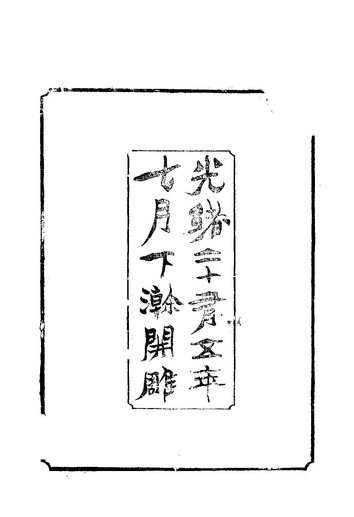 光緒二十有五年
七月下澣開雕